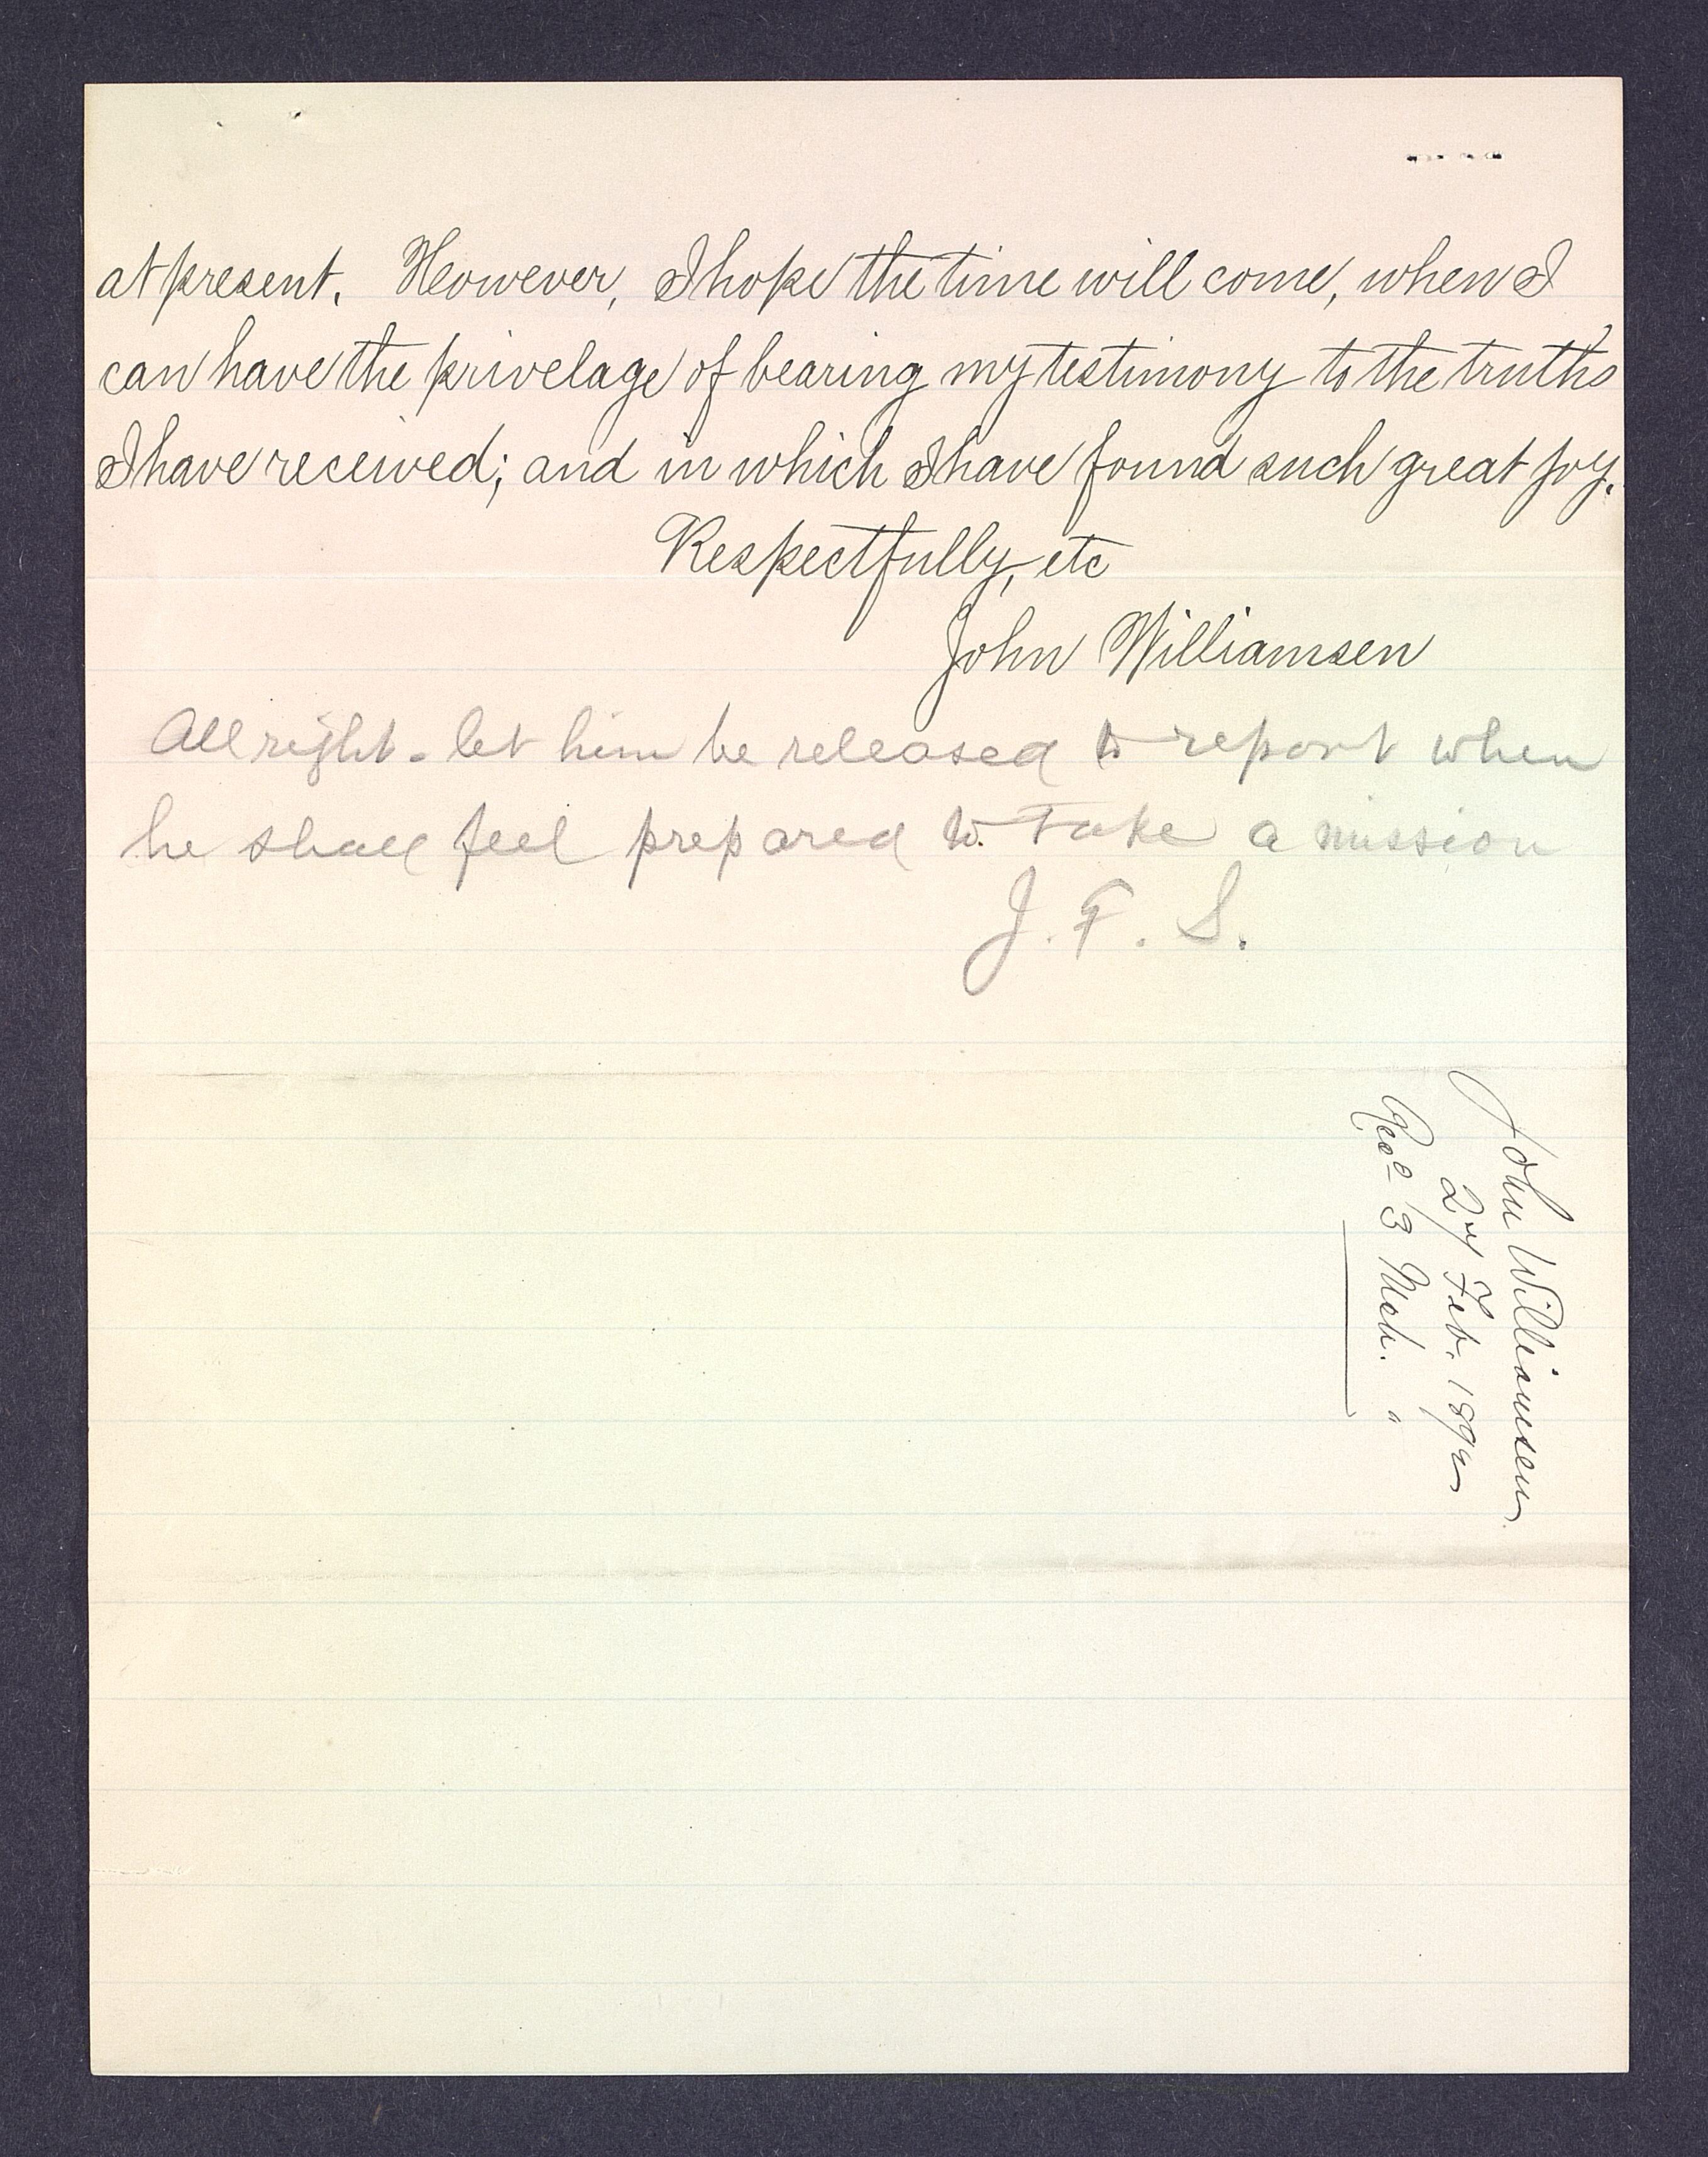 at present. However, I hope the time will come, when I
can have the privelage of bearing my testimony to the truths
I have received; and in which I have found such great joy.
Respectfully, etc
John Williamsen
All right - let him be released to report when
he shall feel prepared to take a mission
J. F. S.
John Williamsen
27 Feb. 1892
Recd 3 Mch. "